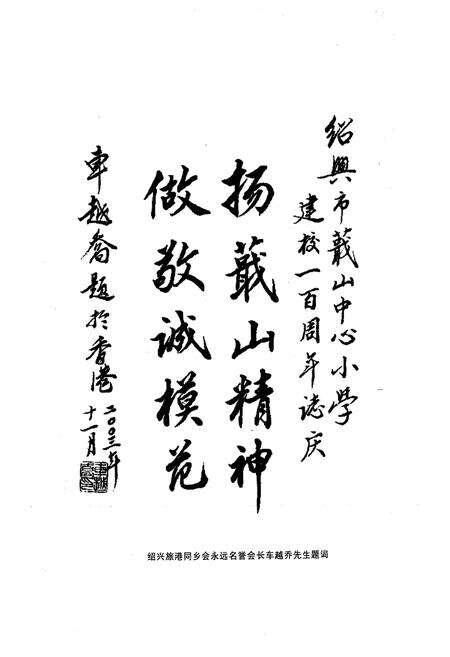 紹興市蕺山中心小学
建校一百周年誌庆
扬蕺山精神
做敬诚模范
車越喬題於香港
二〇〇三年
十一月
绍兴旅港同乡会永远名誉会长车越乔先生题词